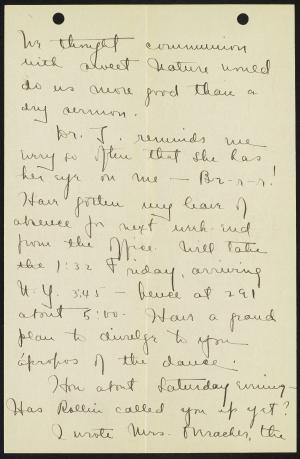 We thought communion
with sweet Nature would
do us more good than a
dry sermon.
Dr. T. reminds me
very so often that she has
her eye on me — Br-r-r!
Have gotten my leave of
absence for next week-end
from the office. Will take
the 1:32 Friday, arriving
N.Y. 3:45 — hence at 291
about 5:00. Have a grand
plan to divulge to you
ápropos of the dance.
How about Saturday evening —
Has Rollin called you up yet?
I wrote Mrs. the